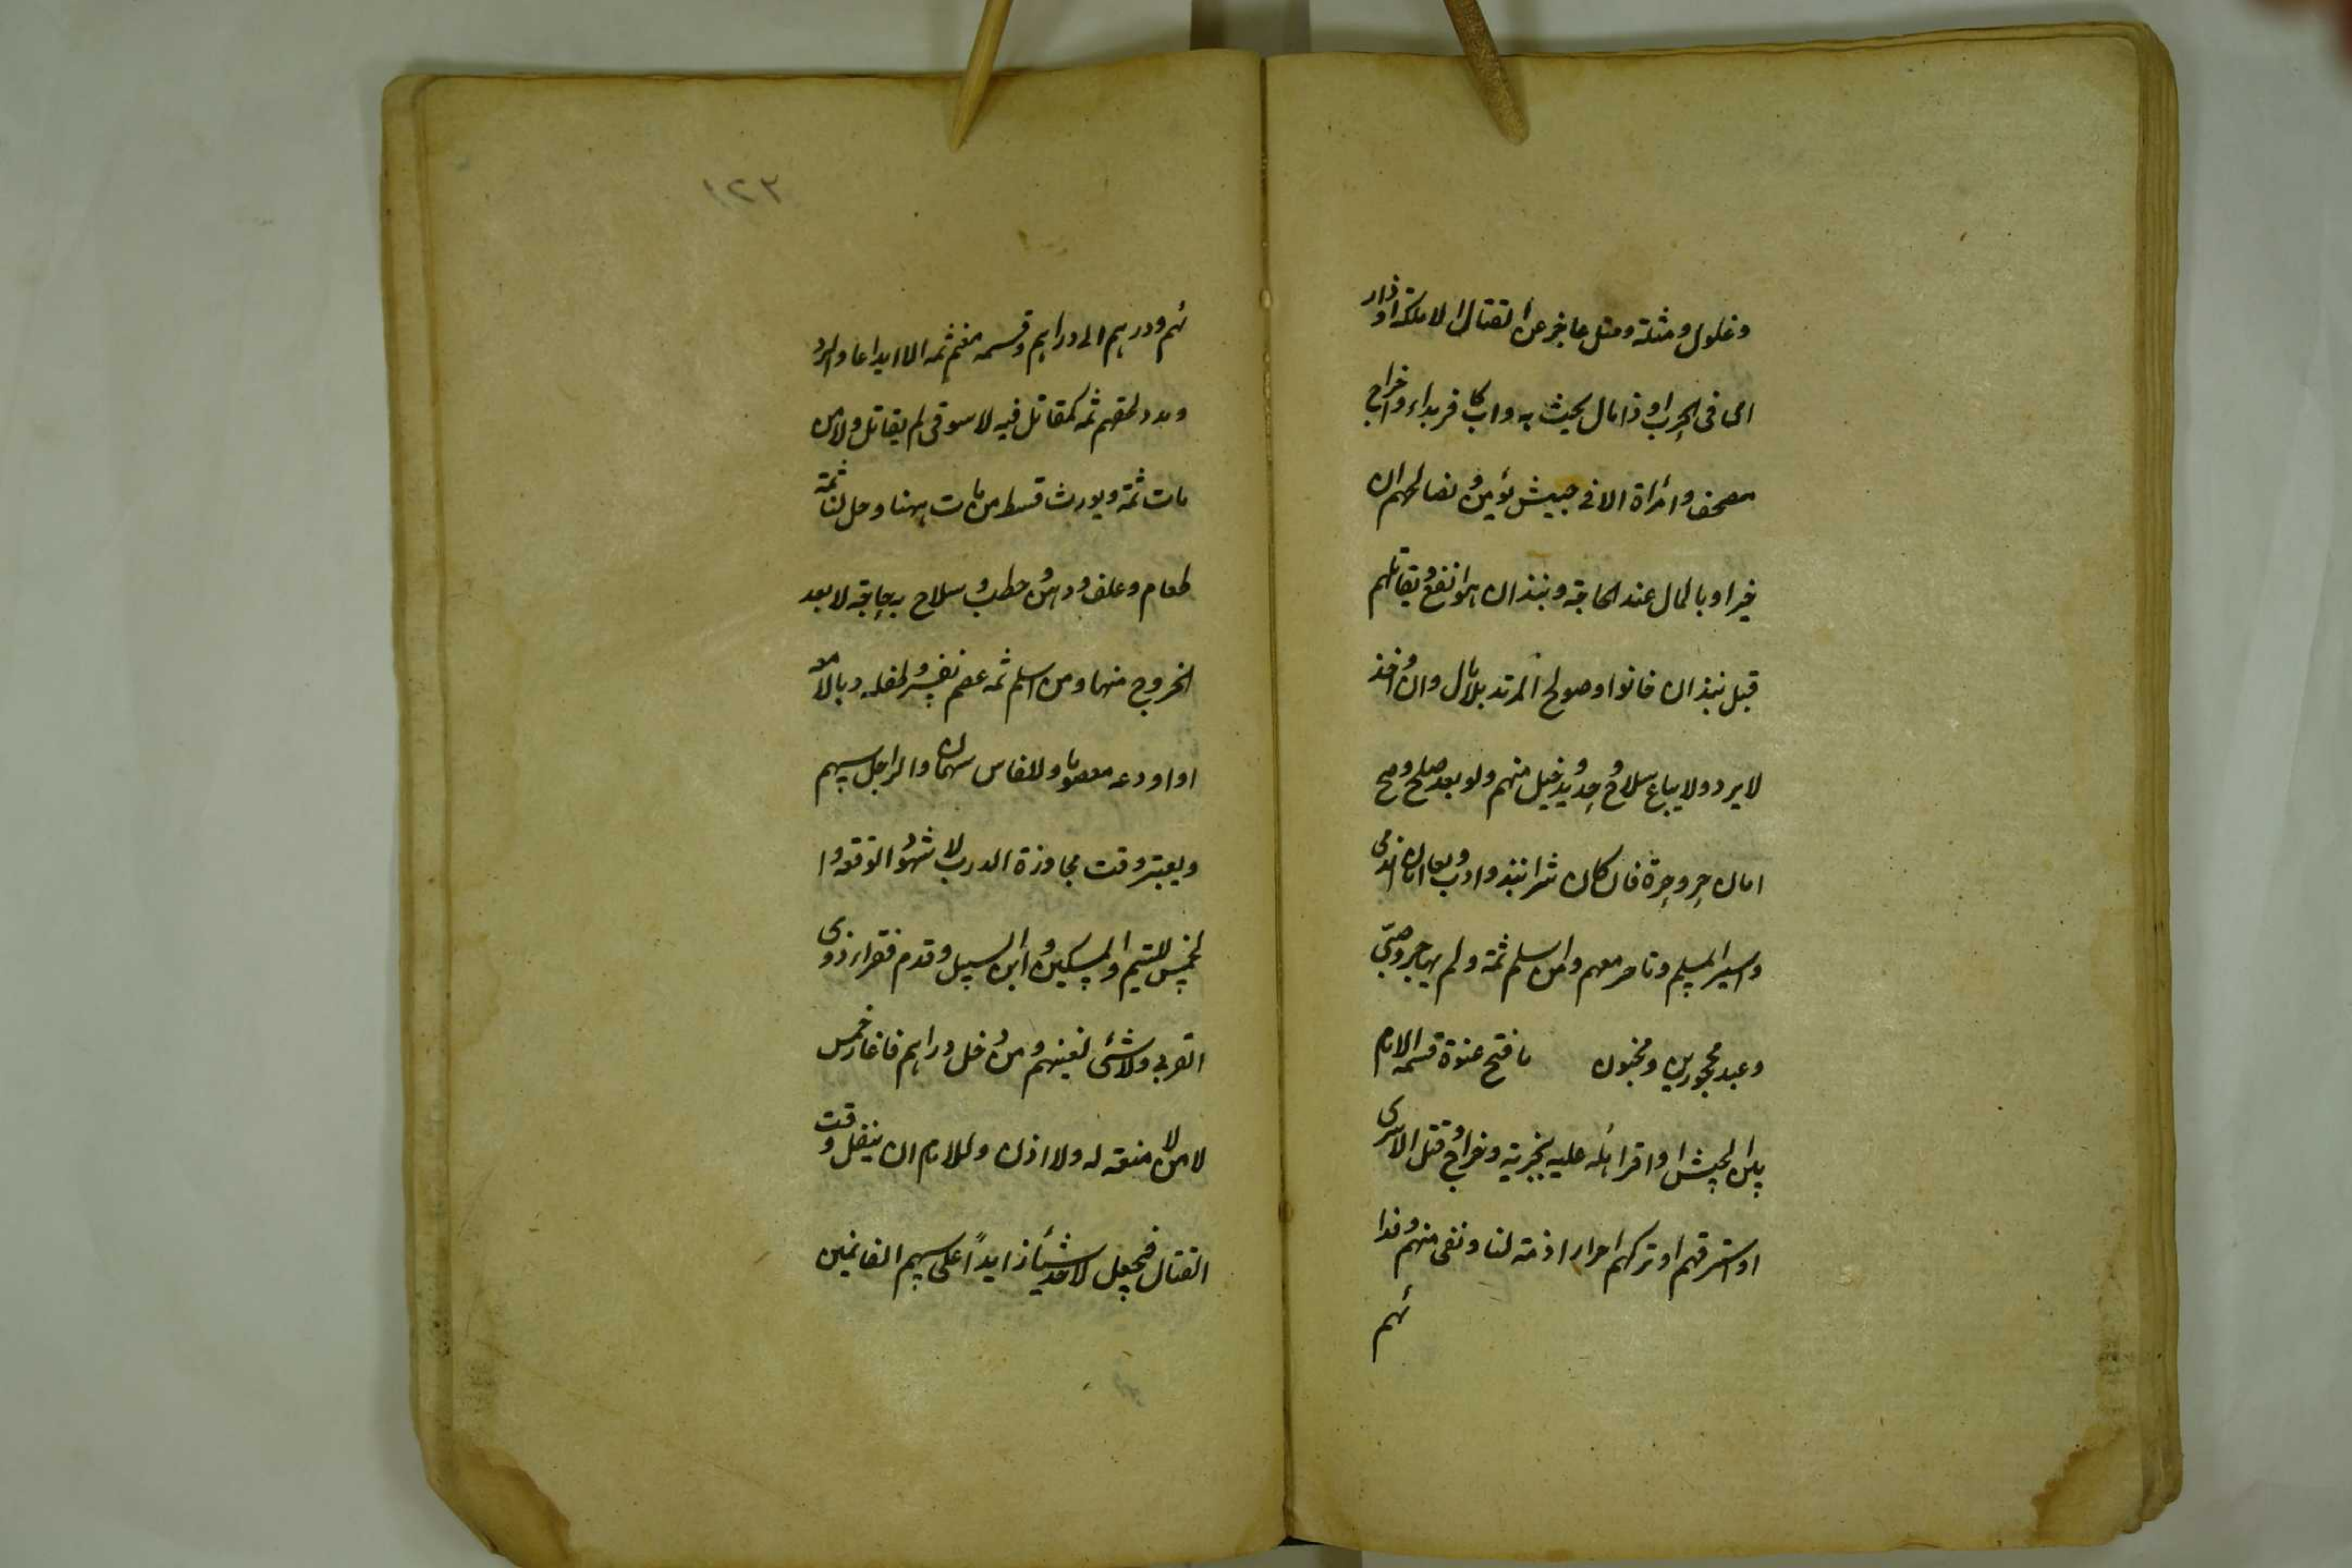 وغلول ومثلة وقتل عاجز عن القتال الا ملكة او ذا
راى فى الحرب او ذا مال يحث به واب كافر بداء واخراج
مصحف وامراة الا فى جيش يؤمن ونصالحهم ان
خيرا وبالمال عند الحاجة ونبذ ان هو انفع ويقاتلهم
قبل نبذ ان خانوا وصولح المرتد بلا مال وان اخذ
لا يرد ولا يباع سلاح وحديد وخيل منهم ولو بعد صلح وصح
امان حر وحرة فان كان شرا نبذ وادب ولغا امان الذمى
واسير المسلم وتاجر معهم ومن اسلم ثمة ولم يهاجر وصبى
وعبد محجورين ومجنون ما فتح عنوة قسمه الامام
بين الجيش او اقر اهله عليه بجزية وخراج وقتل الاسرى
او استرقهم او تركهم احرارا ذمة لنا ونفى منهم وفدا
ئهم
١٢٣
ئهم وردهم الى دارهم وقسمه مغنم ثمه الا ايداعا والرد
ومدد لحقهم ثمه كمقاتل فيه لا سوقى لم يقاتل ولا من
مات ثمة ويورث قسط من مات ههنا وحل لنا ثمة
طعام وعلف ودهن وحطب وسلاح به حاجة لا بعد
الخروج منها ومن اسلم ثمه عصم نفسه وطفله ومالا معه
او اودعه معصوما وللفارس سهمان والراجل سهم
ويعتبر وقت مجاوزة الدرب لا شهود الوقعة وا
لخمس لليتيم والمسكين وابن السبيل وقدم فقراء ذوى
القربى ولا شئ لغنيهم ومن دخل دارهم فاغار خمس
لا من لا منعة له ولا اذن وللامام ان ينفل وقت
القتال فيجعل لاحد شيئا زايدا على سهم الغانمين